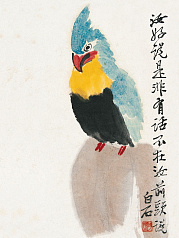 汝好说是非有话不在汝前头说
白石